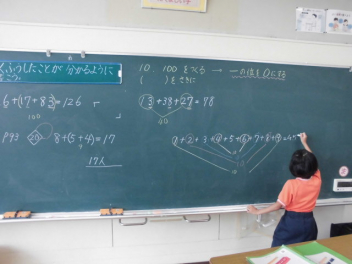 くふうしたことが分かるように
10 100 をつくる → 一の位を0にする
( )をさきに
6+(17+83)=126
100
13+38+27=78
40
P93 20 8+(5+4)=17
17人
1+2+3+4+5+6+7+8+9=45